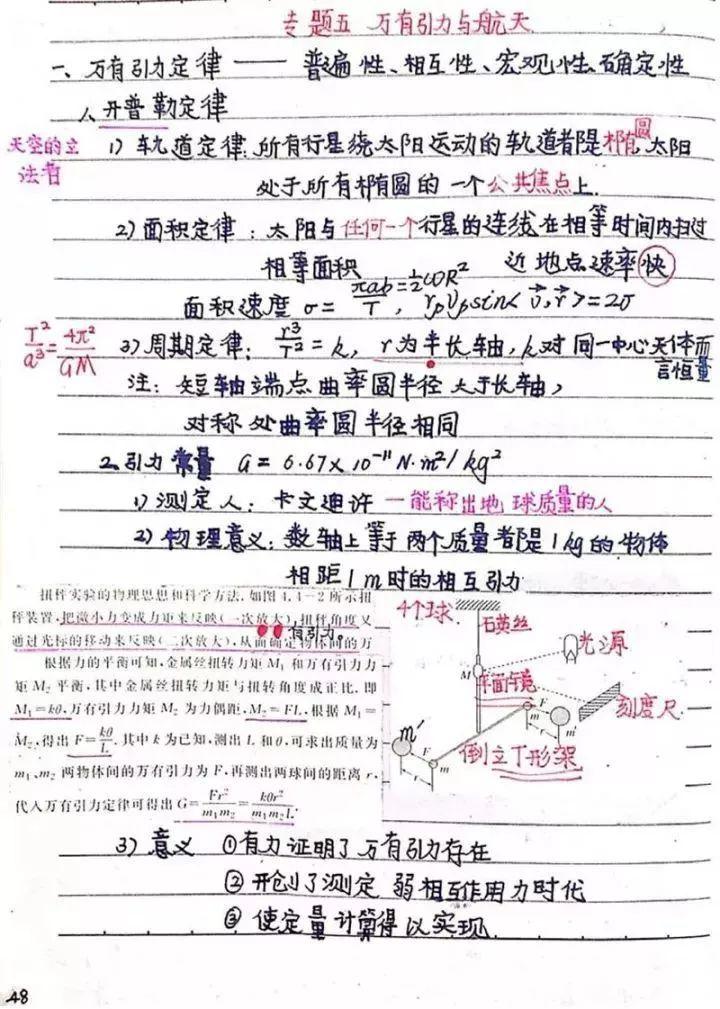 专题五 万有引力与航天
一、万有引力定律 —— 普遍性、相互性、宏观性、确定性
1、开普勒定律
天空的立法者
1) 轨道定律:所有行星绕太阳运动的轨道都是椭圆,太阳
处于所有椭圆的一个公共焦点上.
2) 面积定律:太阳与任何一个行星的连线在相等时间内扫过
相等面积 近地点速率快
面积速度 σ = πab/T = ½ωR², r_pv_psin<v⃗,r⃗> = 2σ
T²/a³ = 4π²/GM
3) 周期定律: r³/T² = k, r为半长轴, k对同一中心天体而
言恒量
注:短轴端点曲率圆半径大于长轴,
对称处曲率圆半径相同
2、引力常量 G = 6.67×10⁻¹¹ N·m²/kg²
1) 测定人:卡文迪许 —能称出地球质量的人
2) 物理意义:数轴上等于两个质量都是1kg的物体
相距1m时的相互引力
扭秤实验的物理思想和科学方法.如图4.4-2所示扭
秤装置,把微小力变成力矩来反映(一次放大),扭秤角度又
通过光标的移动来反映(二次放大),从而确定物体间的万
有引力。
根据力的平衡可知,金属丝扭转力矩M₁和万有引力力
矩M₂平衡,其中金属丝扭转力矩与扭转角度成正比.即
M₁=kθ,万有引力力矩M₂为力偶距,M₂=FL,根据M₁=
M₂,得出F=kθ/L.其中k为已知,测出L和θ,可求出质量为
m₁、m₂两物体间的万有引力为F,再测出两球间的距离r,
代入万有引力定律可得出G=Fr²/m₁m₂=kθr²/m₁m₂L.
4个球
石英丝
光源
M
平面镜
刻度尺
m
m'
m'
F
F
m
r
r
倒立丁形架
3) 意义 ①有力证明了万有引力存在
②开创了测定弱相互作用力时代
③使定量计算得以实现
48